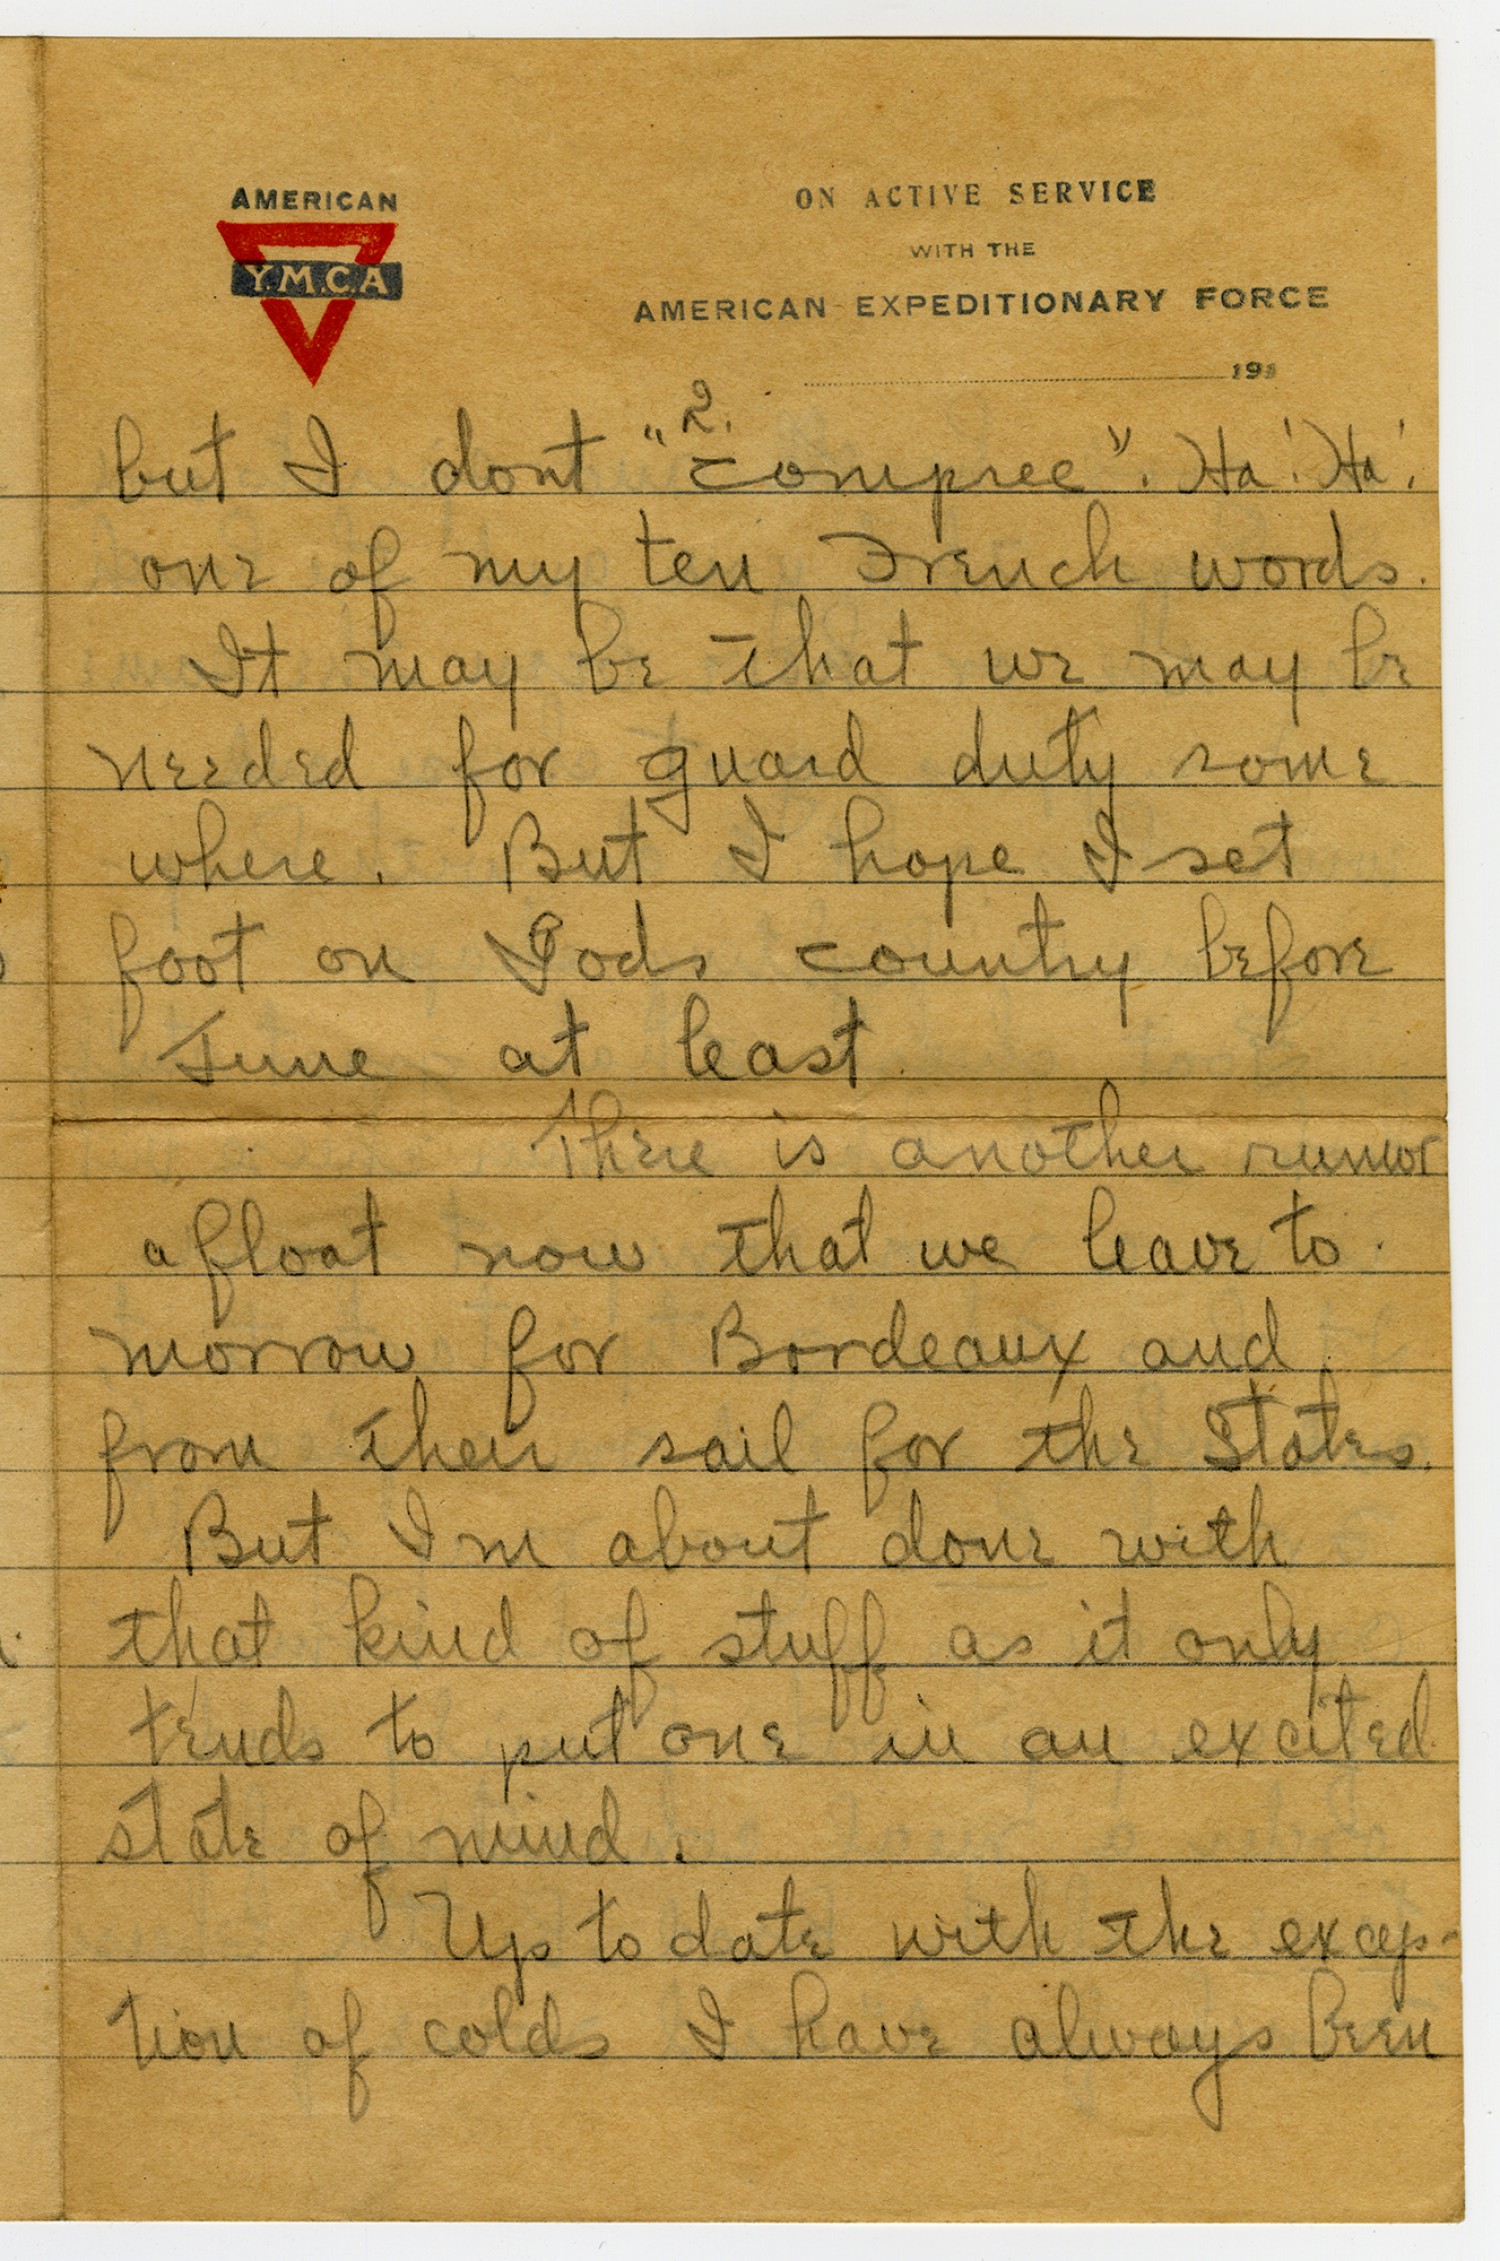 AMERICAN
Y.M.C.A
ON ACTIVE SERVICE
WITH THE
AMERICAN EXPEDITIONARY FORCE
191
2.
but I dont "compree". Ha! Ha!
one of my ten French words.
It may be that we may be
needed for guard duty some
where. But I hope I set
foot on Gods country before
June at least.
There is another rumor
afloat now that we leave to
morrow for Bordeaux and
from then sail for the States.
But Im about done with
that kind of stuff as it only
tends to put one in an excited
state of mind.
Up to date with the excep-
tion of colds I have always been